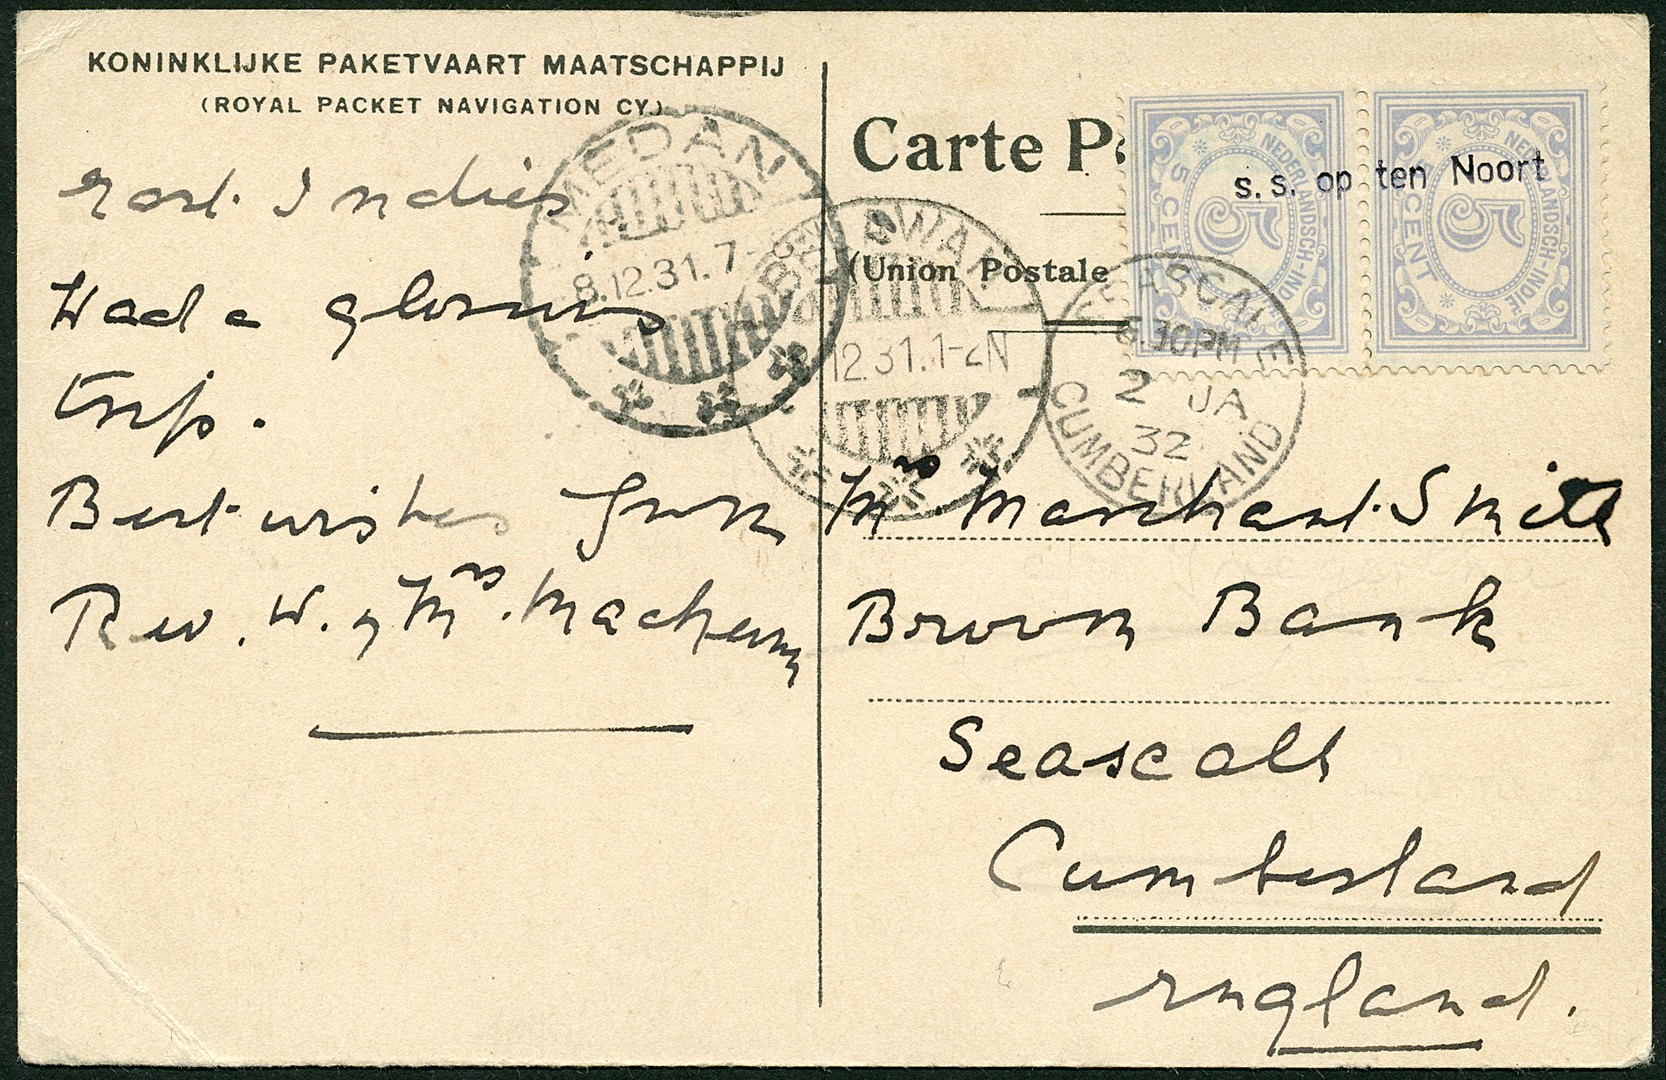 KONINKLIJKE PAKETVAART MAATSCHAPPIJ
(ROYAL PACKET NAVIGATION CY)
East Indies
Had a glorious
trip.
Best wishes from
Rev. W. & Mrs.
MEDAN
8.12.31.7-8
BELAWAN
12.31.1-2N
Carte P
(Union Postale
NEDERLANDSCH-INDIE
5
5 CENT
NEDERLANDSCH-INDIE
5
5 CENT
s.s. op ten Noort
SEASCALE
6.30PM
2 JA
32
CUMBERLAND
Mrs Marchant Smith
Brown Bank
Seascale
Cumberland
England.